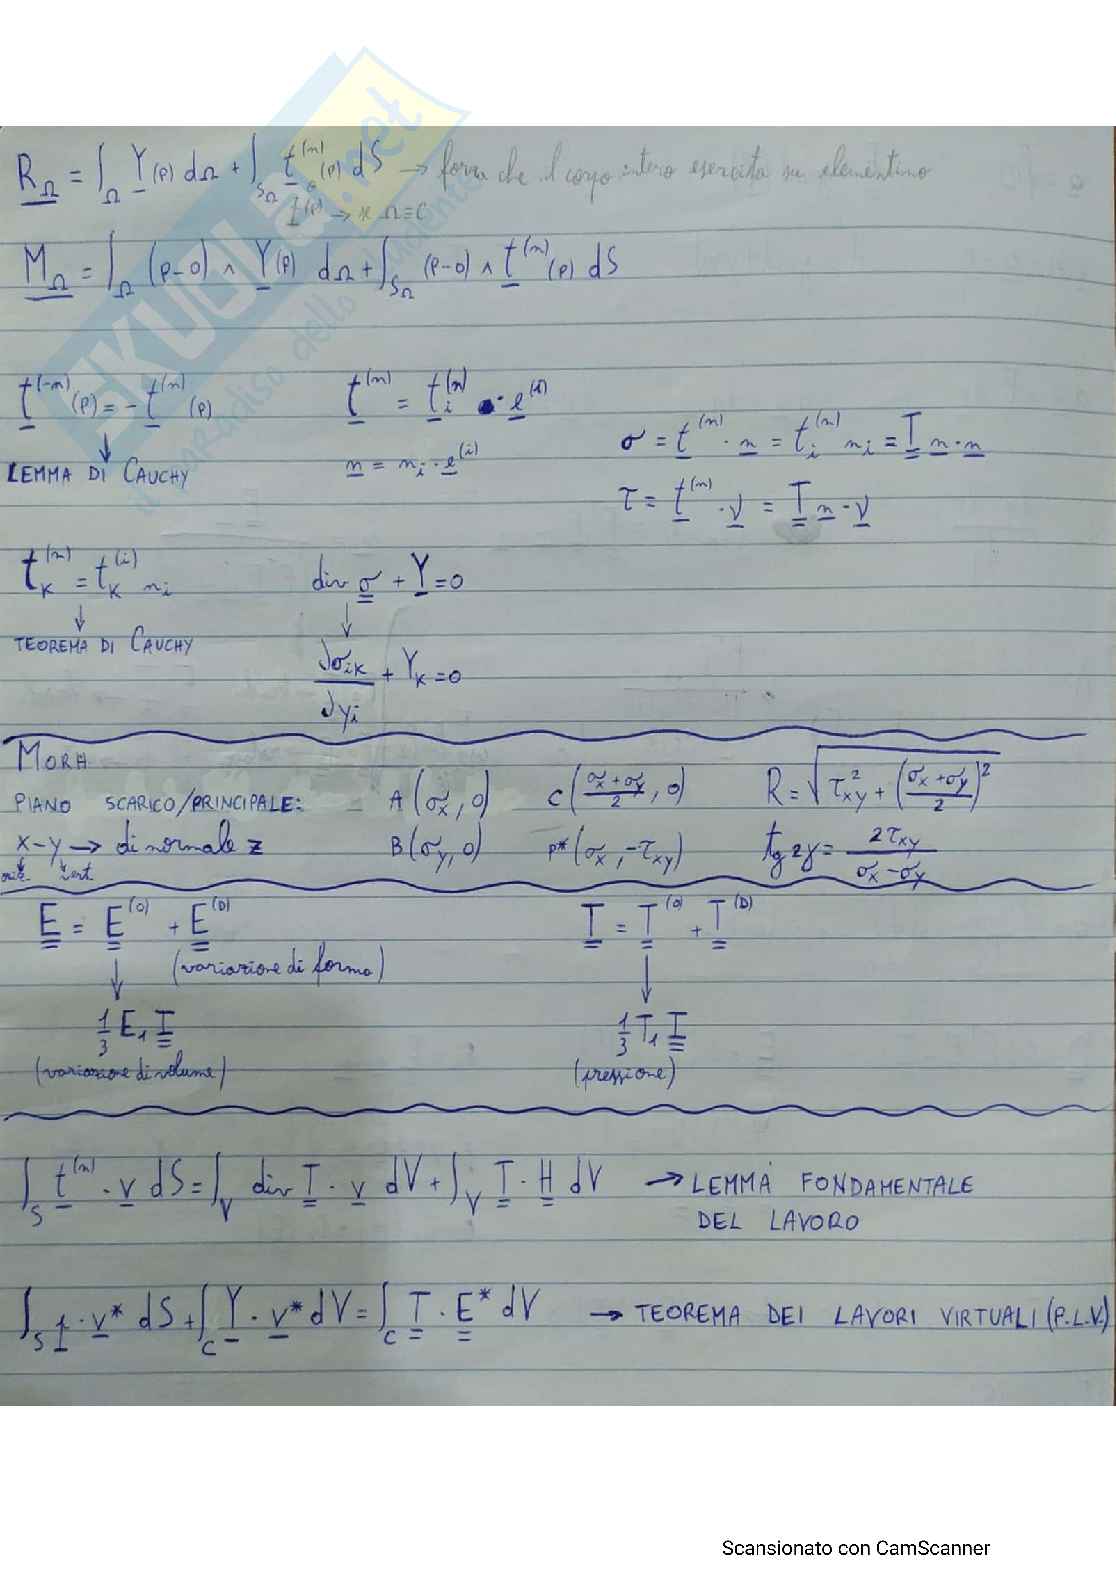 R_Ω = ∫_Ω Y(P) dΩ + ∫_{S_Ω} t^(n)(P) dS → forza che il corpo intero esercita su elementino
f(P) → se Ω≡C
M_Ω = ∫_Ω (P-O) ∧ Y(P) dΩ + ∫_{S_Ω} (P-O) ∧ t^(n)(P) dS
t^(-n)(P) = - t^(n)(P)
↓
LEMMA DI CAUCHY
t^(n) = t_i^(n) · e^(i)
n = n_i · e^(i)
σ = t^(n) · n = t_i^(n) n_i = T n · n
τ = t^(n) · ν = T n · ν
t_K^(n) = t_K^(i) n_i
↓
TEOREMA DI CAUCHY
div σ + Y = 0
↓
∂σ_iK/∂y_i + Y_K = 0
MOHR
PIANO SCARICO/PRINCIPALE:
x-y → di normale z
oriz. vert.
A(σ_x, 0)
B(σ_y, 0)
C((σ_x + σ_y)/2, 0)
P*(σ_x, -τ_xy)
R = √(τ_xy² + ((σ_x + σ_y)/2)²)
tg 2γ = 2τ_xy/(σ_x - σ_y)
E = E^(0) + E^(D)
(variazione di forma)
↓
1/3 E_1 I
(variazione di volume)
T = T^(0) + T^(D)
↓
1/3 T_1 I
(pressione)
∫_S t^(n) · v dS = ∫_V div T · v dV + ∫_V T · H dV → LEMMA FONDAMENTALE
DEL LAVORO
∫_S f · v* dS + ∫_C Y · v* dV = ∫_C T · E* dV → TEOREMA DEI LAVORI VIRTUALI (P.L.V.)
SKUOLA.net
il paradiso dello studente
Scansionato con CamScanner